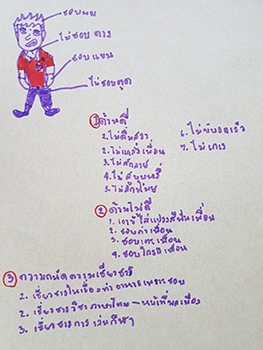 ชอบผม
ไม่ชอบ คาง
ชอบแขน
ไม่ชอบตูด
① ด้านดี
1. ไม่ดื่มสุรา
2. ไม่แกล้งเพื่อน
3. ไม่
4. ไม่สูบบุหรี่
5. ไม่
6. ไม่ขับรถเร็ว
7. ไม่เกเร
② ด้านไม่ดี
1. เอาขี้ใส่แปรงสีฟันเพื่อน
2. ชอบด่าเพื่อน
3. ชอบเตะเพื่อน
4. ชอบโกรธเพื่อน
③ ความถนัดความเชี่ยวชาญ
1. เชี่ยวชาญในเรื่องทำอาหาร
2. เชี่ยวชาญวิชาภาษาไทย - หน้าที่พลเมือง
3. เชี่ยวชาญการเล่นกีฬา